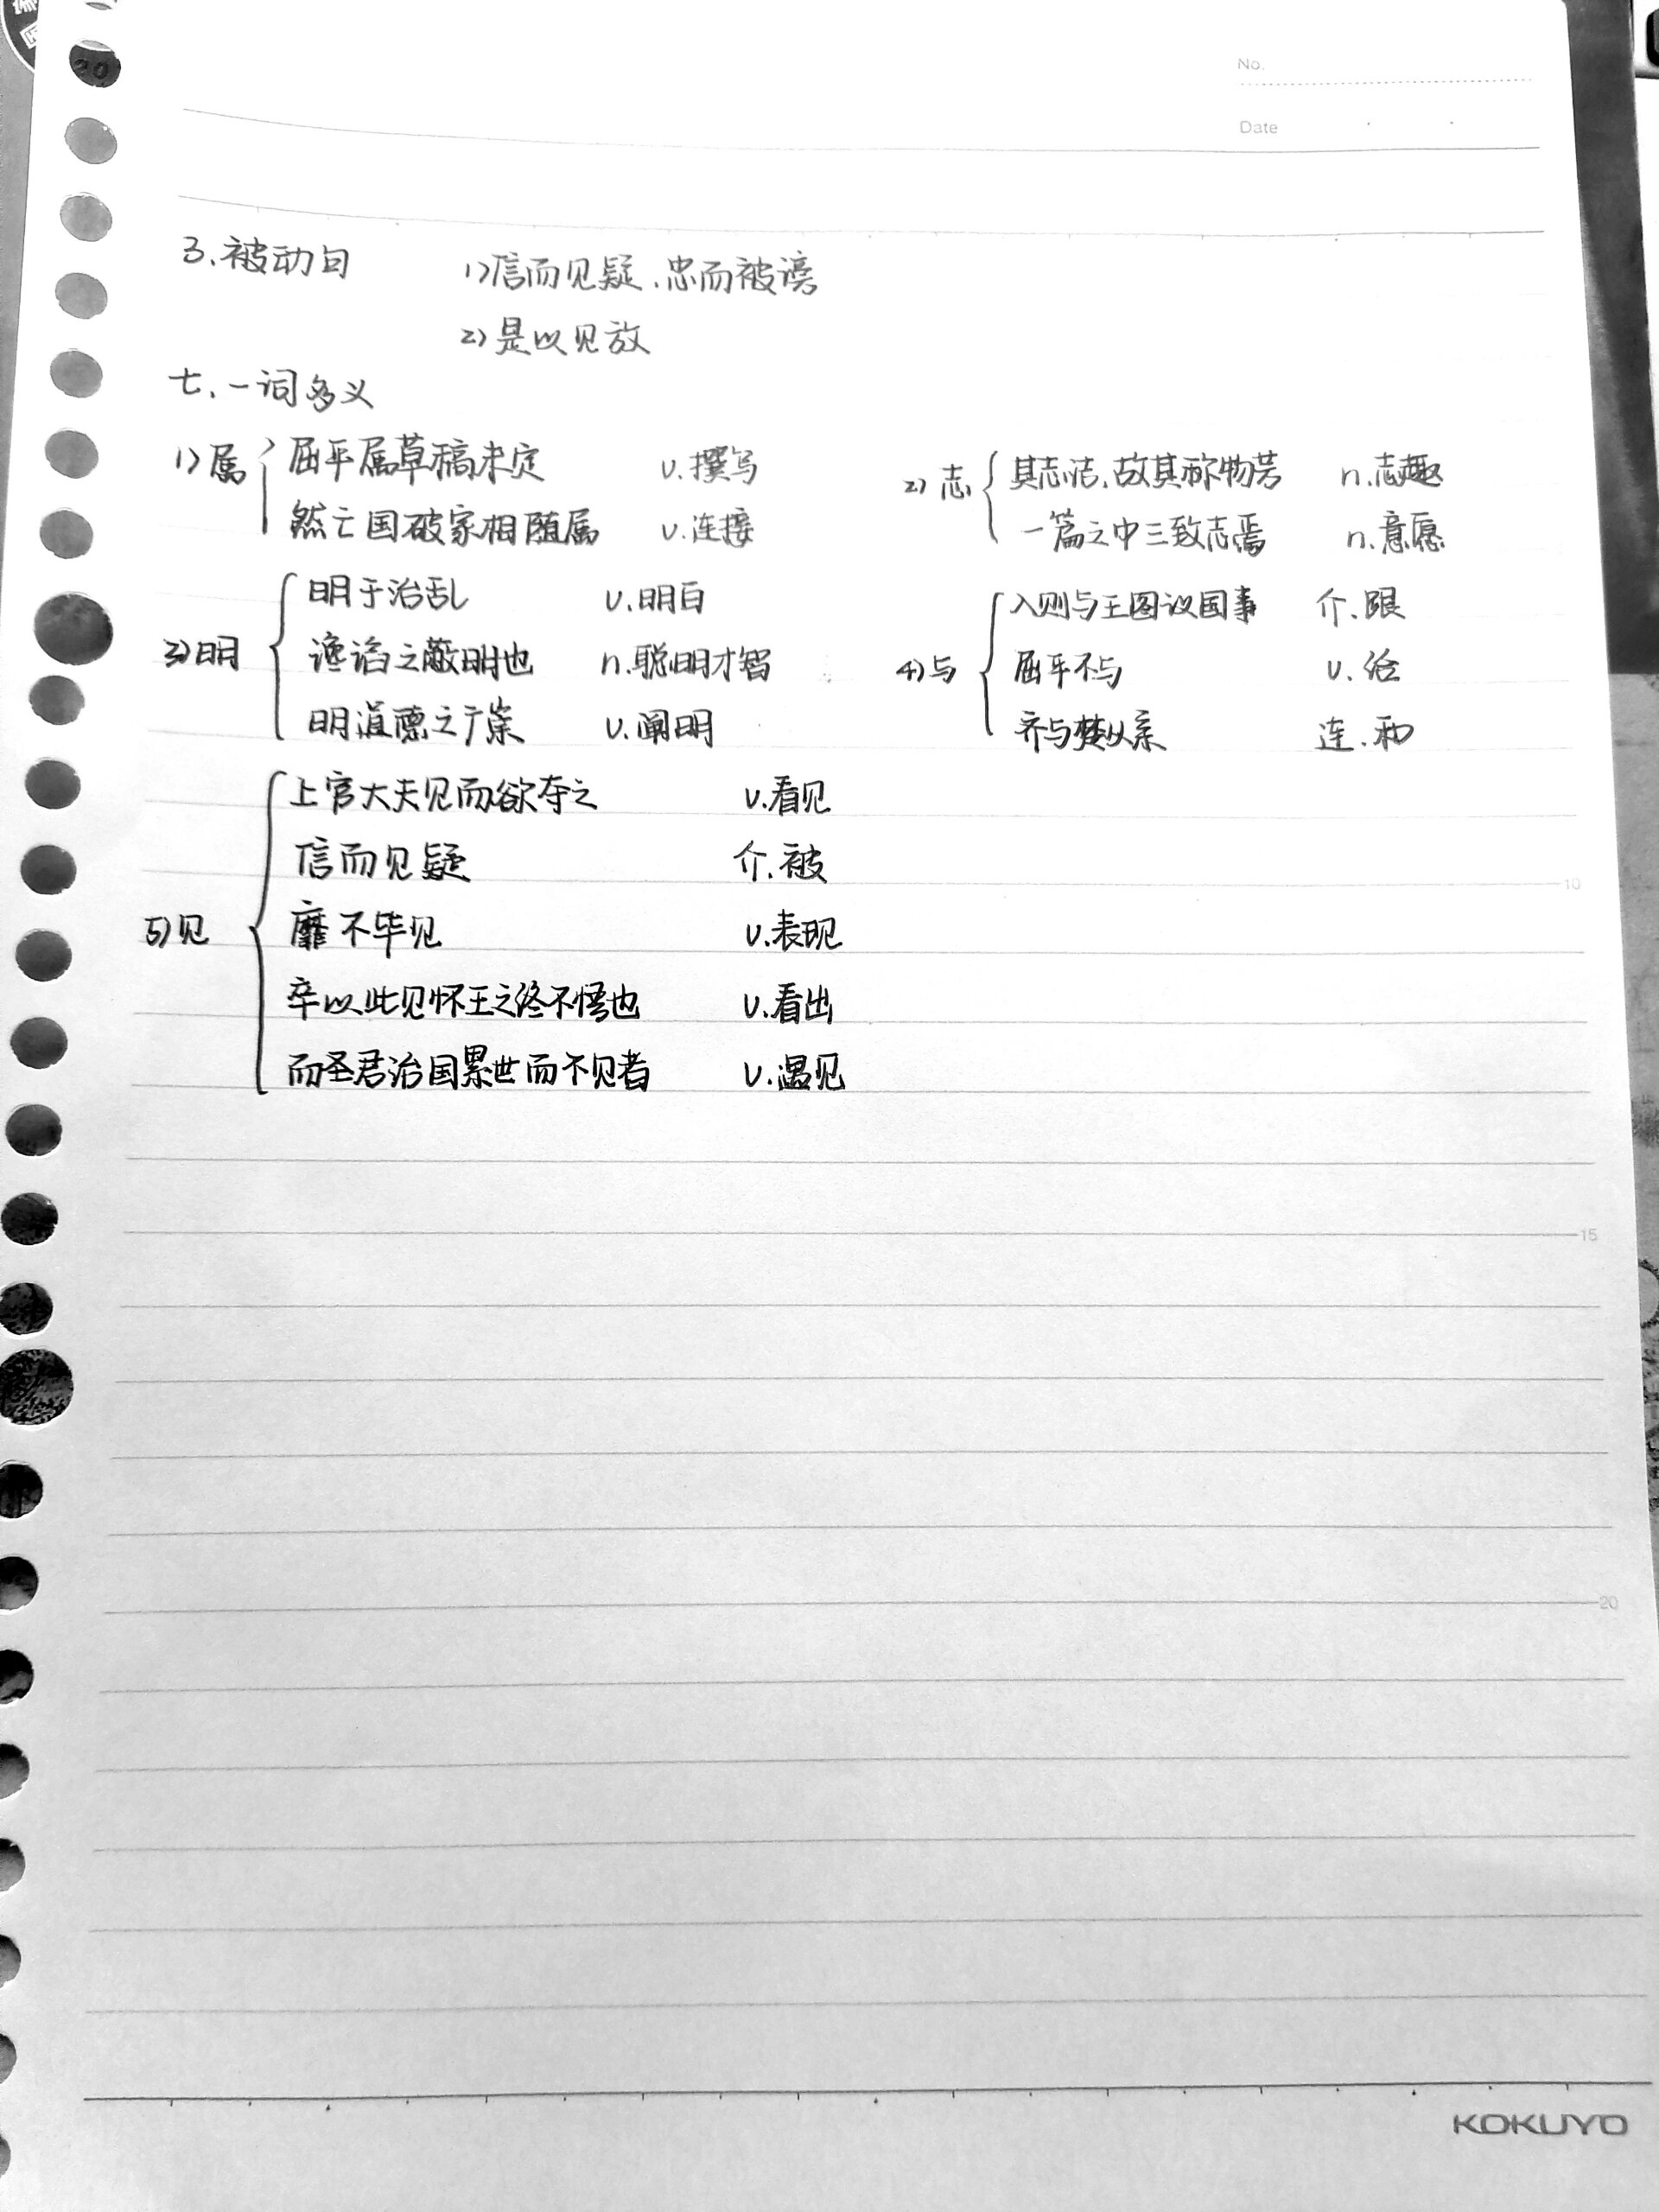 No.
Date
3.被动句 1)信而见疑,忠而被谤
2)是以见放
七.一词多义
1)属 屈平属草稿未定 v.撰写
然亡国破家相随属 v.连接
2)志 其志洁,故其称物芳 n.志趣
一篇之中三致志焉 n.意愿
3)明 明于治乱 v.明白
谗谄之蔽明也 n.聪明才智
明道德之广崇 v.阐明
4)与 入则与王图议国事 介.跟
屈平不与 v.给
齐与楚从亲 连.和
5)见 上官大夫见而欲夺之 v.看见
信而见疑 介.被
靡不毕见 v.表现
卒以此见怀王之终不悟也 v.看出
而圣君治国累世而不见者 v.遇见
10
15
20
KOKUYO